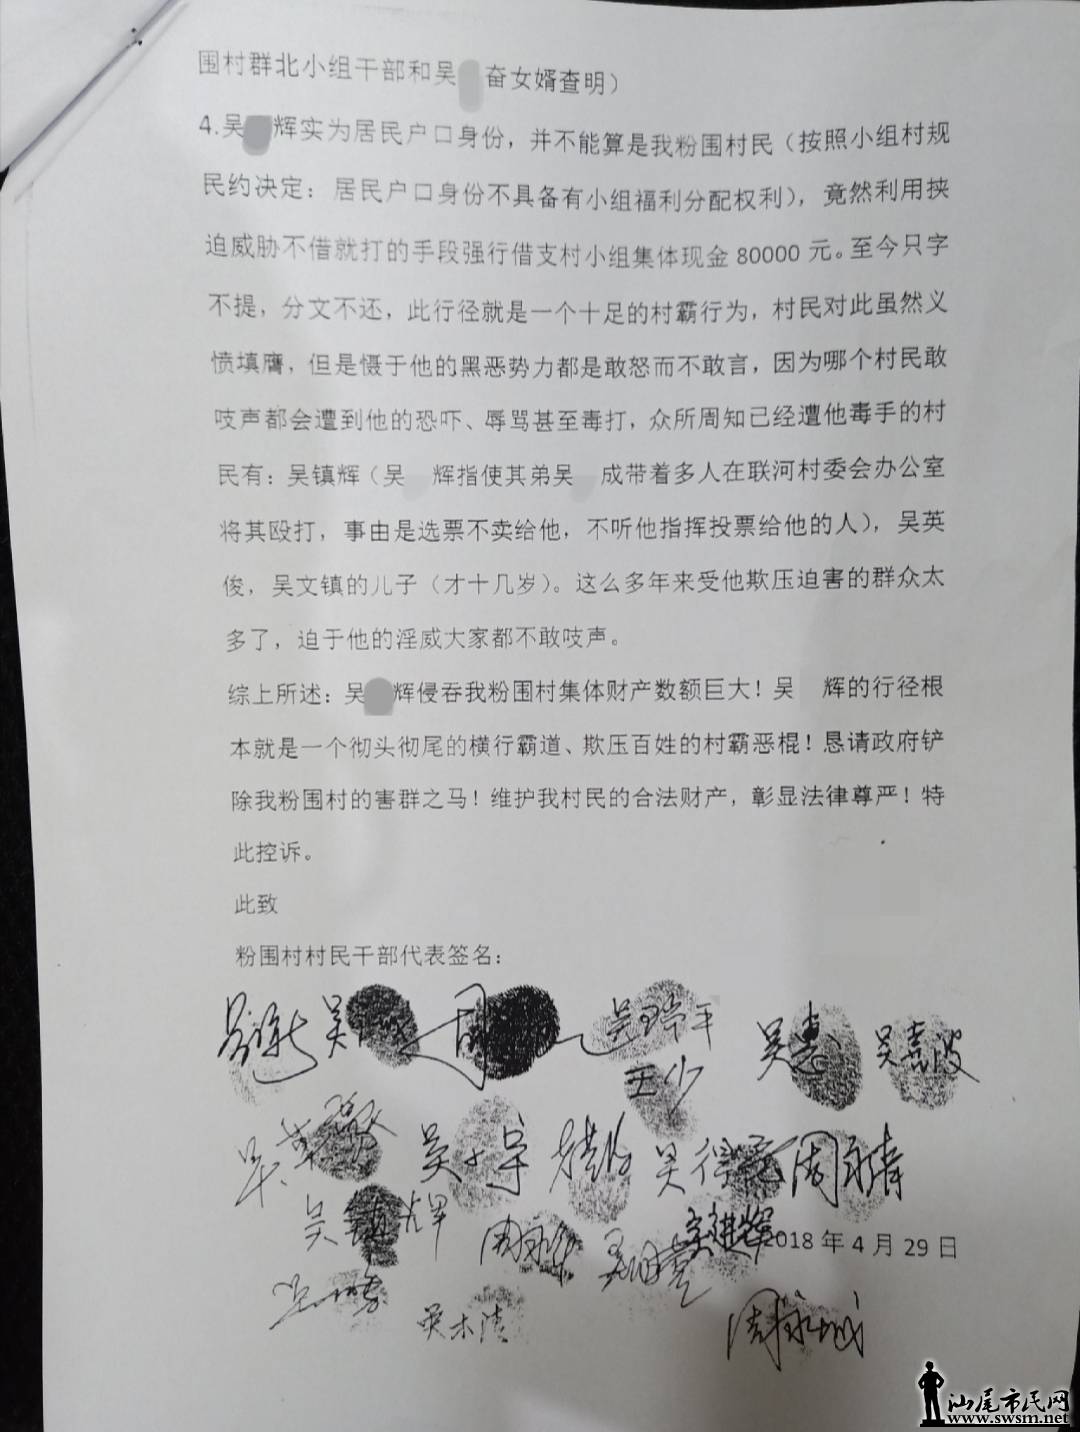 围村群北小组干部和吴 奋女婿查明）
4.吴 辉实为居民户口身份，并不能算是我粉围村民（按照小组村规
民约决定：居民户口身份不具备有小组福利分配权利），竟然利用挟
迫威胁不借就打的手段强行借支村小组集体现金 80000 元。至今只字
不提，分文不还，此行径就是一个十足的村霸行为，村民对此虽然义
愤填膺，但是慑于他的黑恶势力都是敢怒而不敢言，因为哪个村民敢
吱声都会遭到他的恐吓、辱骂甚至毒打，众所周知已经遭他毒手的村
民有：吴镇辉（吴 辉指使其弟吴 成带着多人在联河村委会办公室
将其殴打，事由是选票不卖给他，不听他指挥投票给他的人），吴英
俊，吴文镇的儿子（才十几岁）。这么多年来受他欺压迫害的群众太
多了，迫于他的淫威大家都不敢吱声。
综上所述：吴 辉侵吞我粉围村集体财产数额巨大！吴 辉的行径根
本就是一个彻头彻尾的横行霸道、欺压百姓的村霸恶棍！恳请政府铲
除我粉围村的害群之马！维护我村民的合法财产，彰显法律尊严！特
此控诉。
此致
粉围村村民干部代表签名：
吴惠
王少
周永青
吴镇辉
2018 年 4 月 29 日
吴木清
周永城
汕尾市民网
www.swsm.net